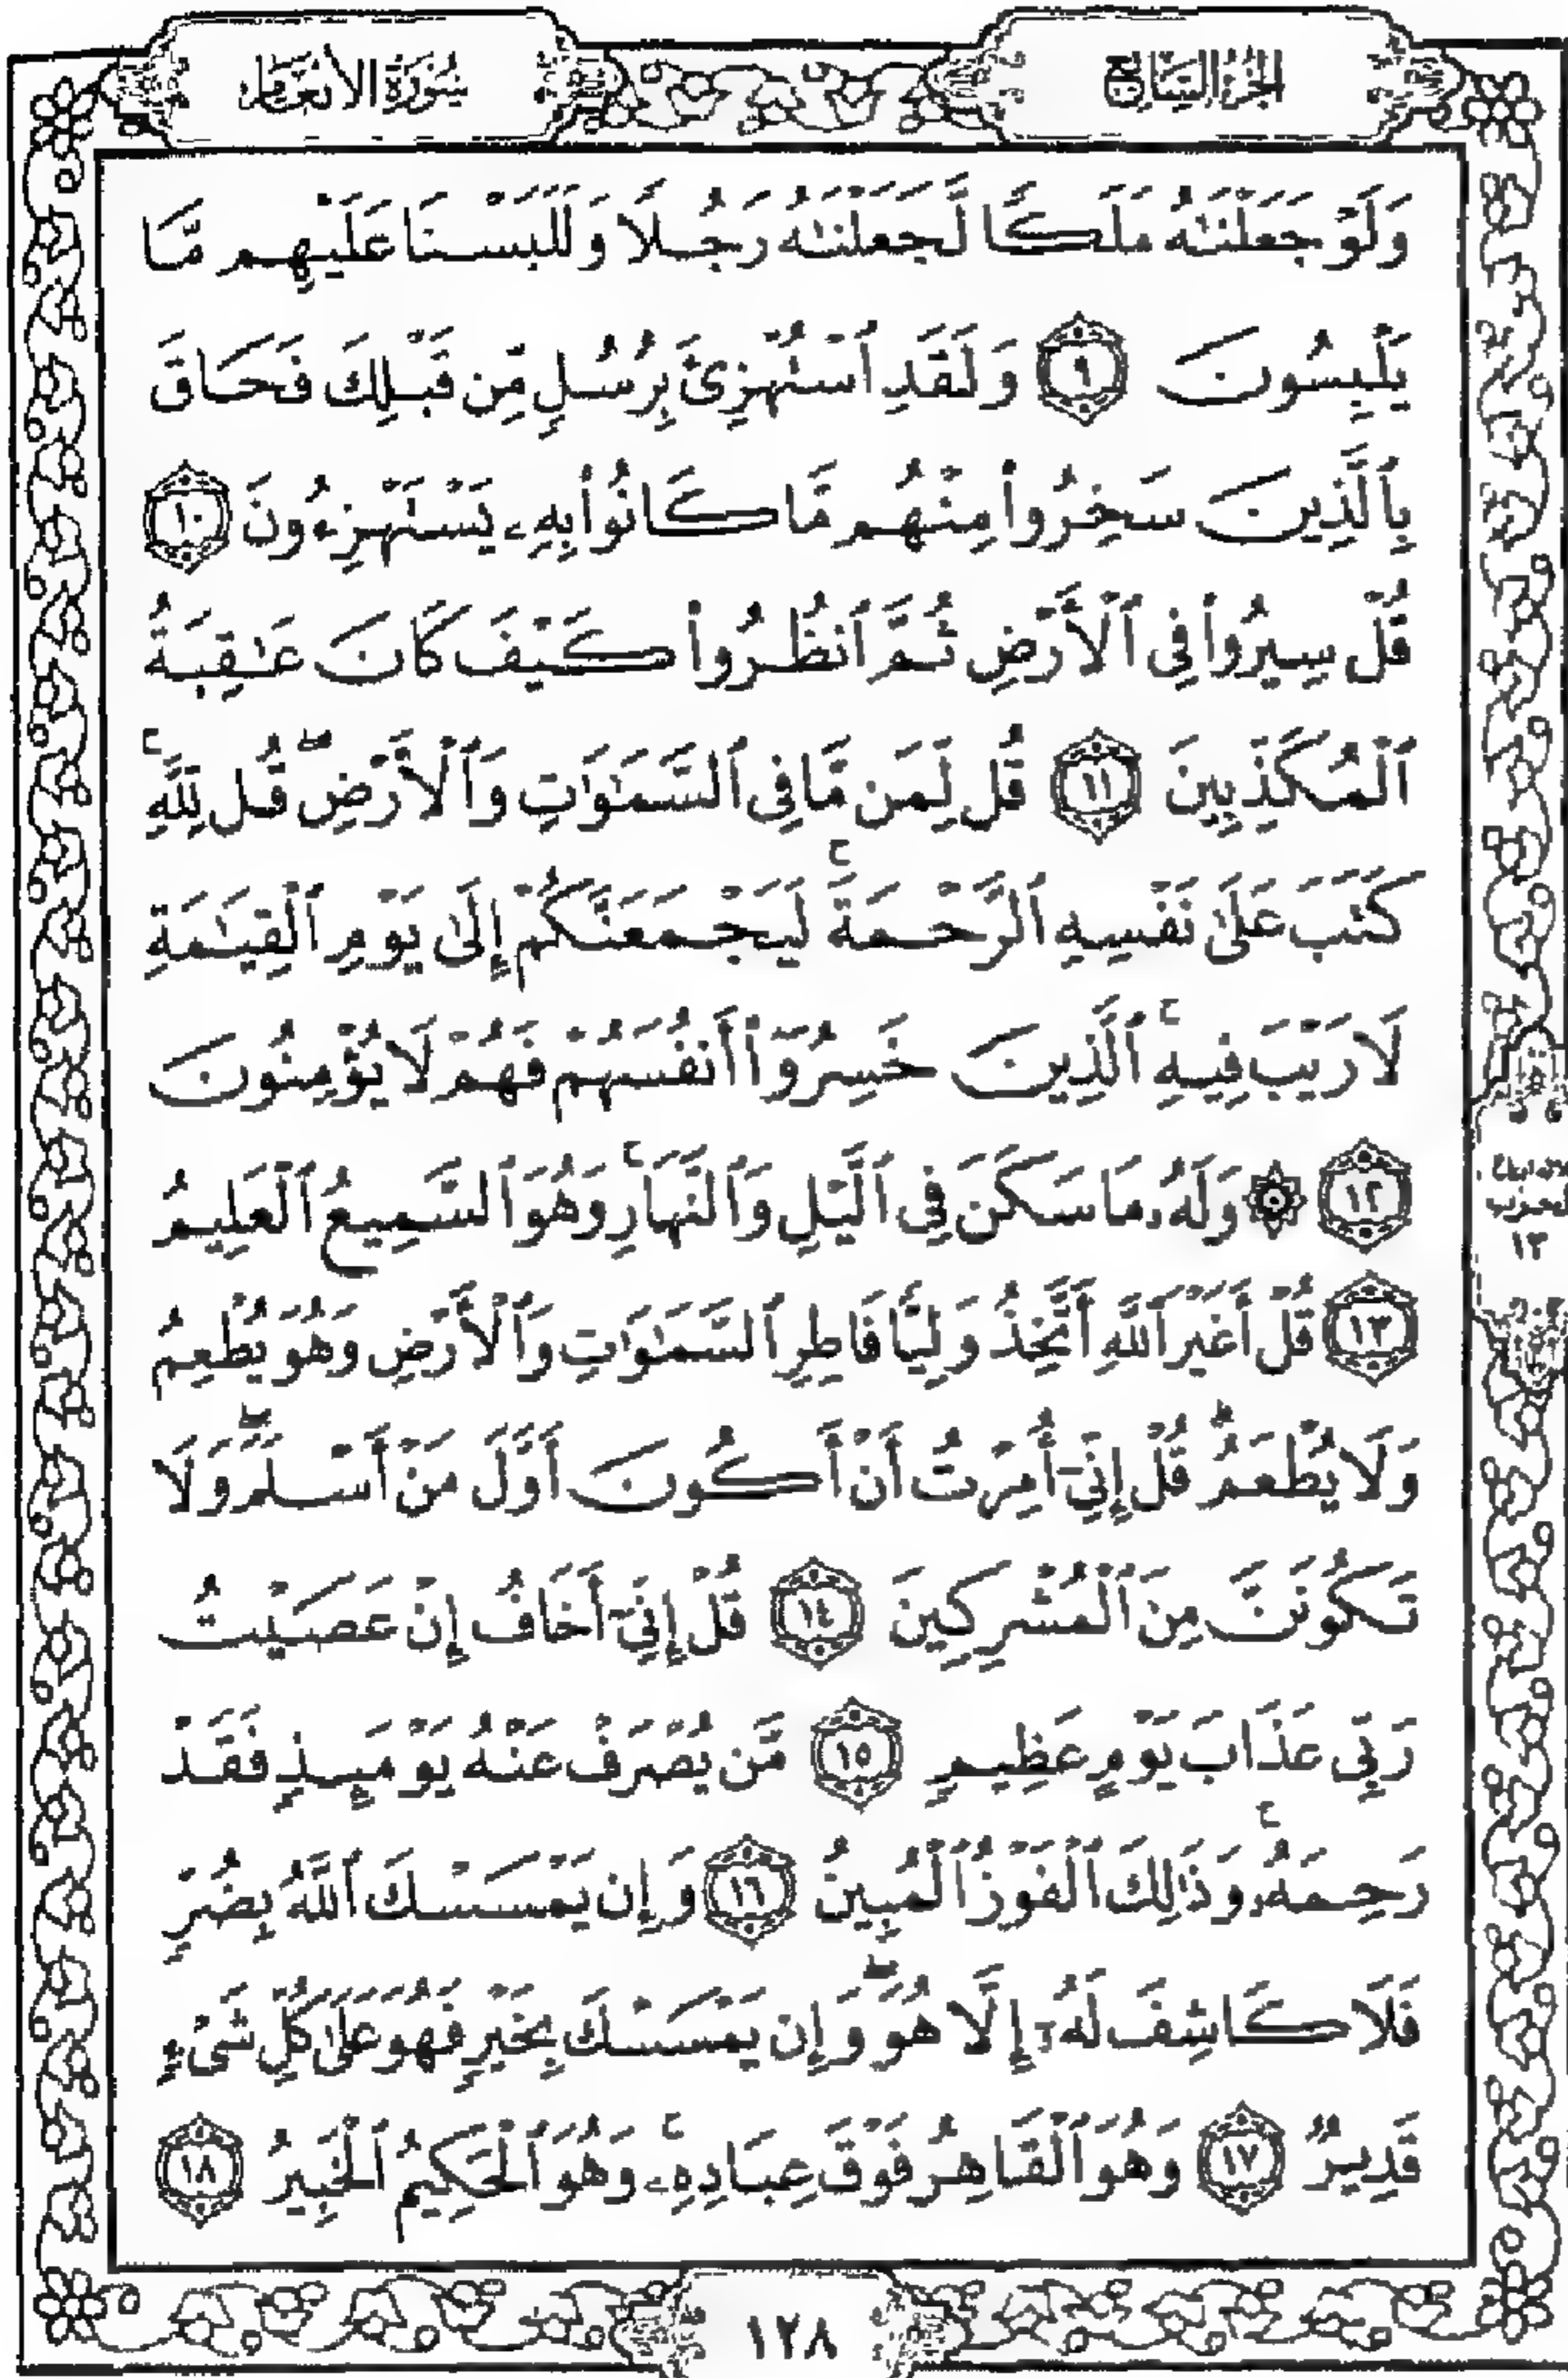 الجزء السابع
سورة الأنعام
وَلَوْ جَعَلْنَٰهُ مَلَكًا لَّجَعَلْنَٰهُ رَجُلًا وَلَلَبَسْنَا عَلَيْهِم مَّا
يَلْبِسُونَ ٩ وَلَقَدِ ٱسْتُهْزِئَ بِرُسُلٍ مِّن قَبْلِكَ فَحَاقَ
بِٱلَّذِينَ سَخِرُوا۟ مِنْهُم مَّا كَانُوا۟ بِهِۦ يَسْتَهْزِءُونَ ١٠
قُلْ سِيرُوا۟ فِى ٱلْأَرْضِ ثُمَّ ٱنظُرُوا۟ كَيْفَ كَانَ عَٰقِبَةُ
ٱلْمُكَذِّبِينَ ١١ قُل لِّمَن مَّا فِى ٱلسَّمَٰوَٰتِ وَٱلْأَرْضِ ۖ قُل لِّلَّهِ ۚ
كَتَبَ عَلَىٰ نَفْسِهِ ٱلرَّحْمَةَ ۚ لَيَجْمَعَنَّكُمْ إِلَىٰ يَوْمِ ٱلْقِيَٰمَةِ
لَا رَيْبَ فِيهِ ۚ ٱلَّذِينَ خَسِرُوٓا۟ أَنفُسَهُمْ فَهُمْ لَا يُؤْمِنُونَ
١٢ ۞ وَلَهُۥ مَا سَكَنَ فِى ٱلَّيْلِ وَٱلنَّهَارِ ۚ وَهُوَ ٱلسَّمِيعُ ٱلْعَلِيمُ
١٣ قُلْ أَغَيْرَ ٱللَّهِ أَتَّخِذُ وَلِيًّا فَاطِرِ ٱلسَّمَٰوَٰتِ وَٱلْأَرْضِ وَهُوَ يُطْعِمُ
وَلَا يُطْعَمُ ۗ قُلْ إِنِّىٓ أُمِرْتُ أَنْ أَكُونَ أَوَّلَ مَنْ أَسْلَمَ ۖ وَلَا
تَكُونَنَّ مِنَ ٱلْمُشْرِكِينَ ١٤ قُلْ إِنِّىٓ أَخَافُ إِنْ عَصَيْتُ
رَبِّى عَذَابَ يَوْمٍ عَظِيمٍ ١٥ مَّن يُصْرَفْ عَنْهُ يَوْمَئِذٍ فَقَدْ
رَحِمَهُۥ ۚ وَذَٰلِكَ ٱلْفَوْزُ ٱلْمُبِينُ ١٦ وَإِن يَمْسَسْكَ ٱللَّهُ بِضُرٍّ
فَلَا كَاشِفَ لَهُۥٓ إِلَّا هُوَ ۖ وَإِن يَمْسَسْكَ بِخَيْرٍ فَهُوَ عَلَىٰ كُلِّ شَىْءٍ
قَدِيرٌ ١٧ وَهُوَ ٱلْقَاهِرُ فَوْقَ عِبَادِهِۦ ۚ وَهُوَ ٱلْحَكِيمُ ٱلْخَبِيرُ ١٨
١٣
١٢٨